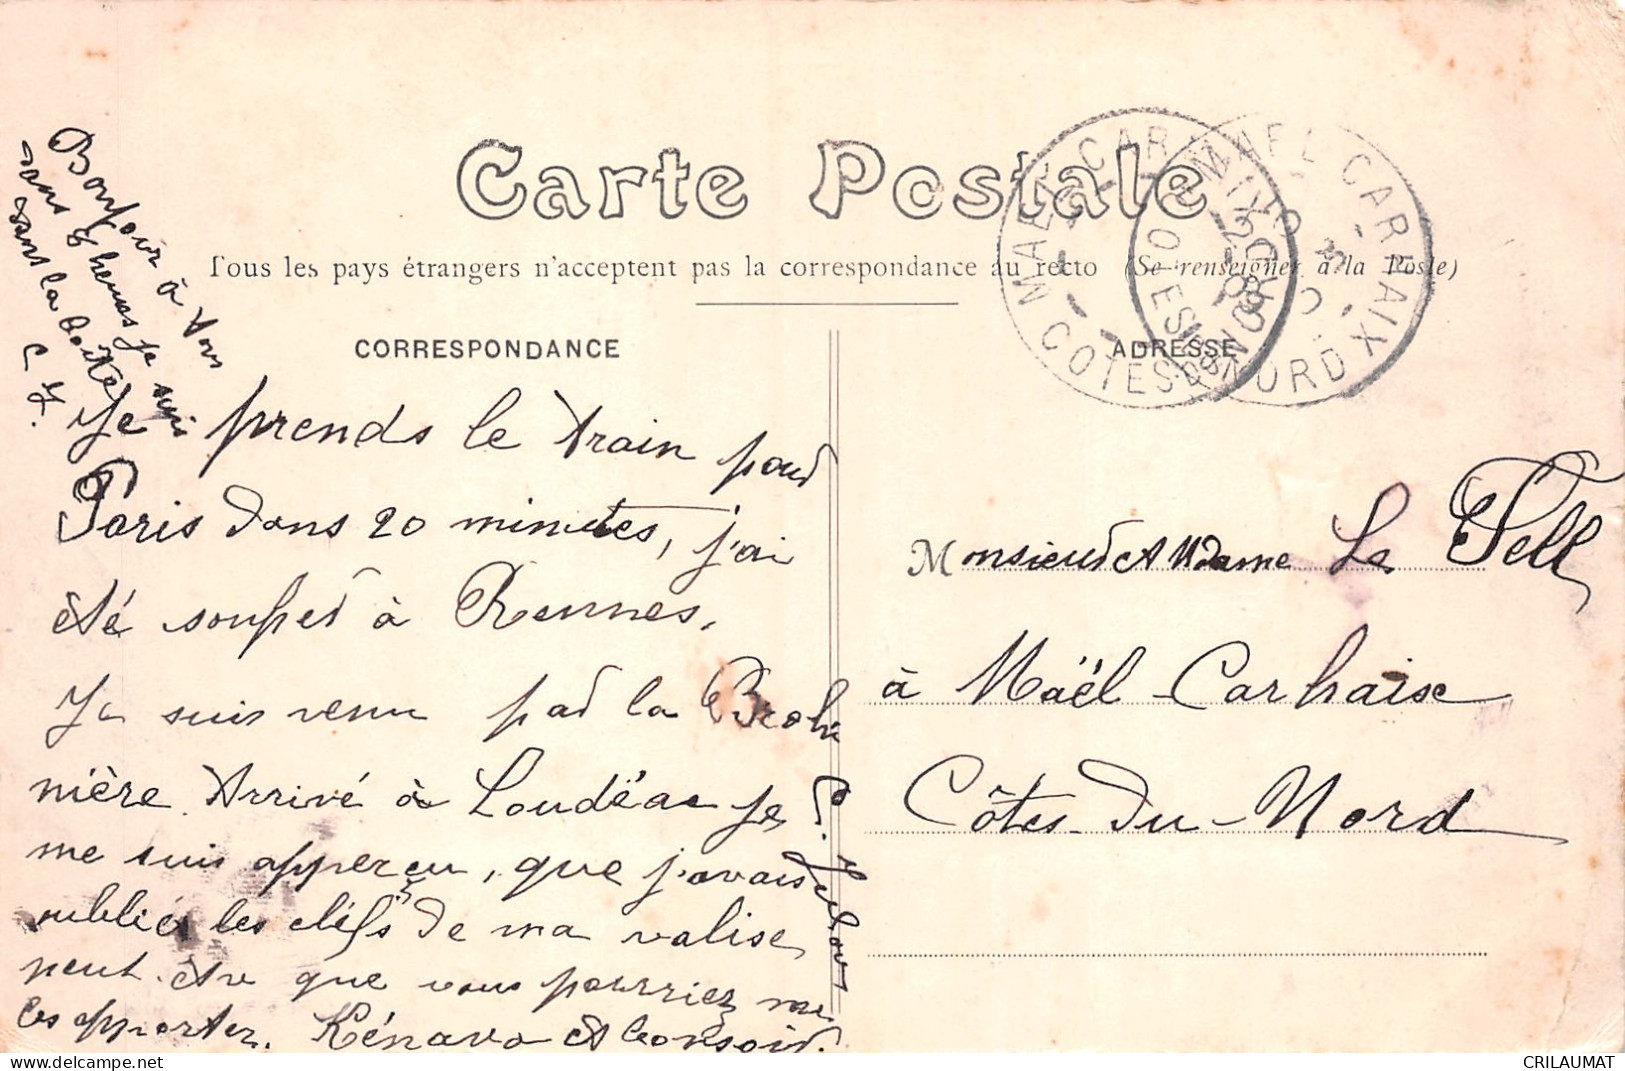 Carte Postale
Tous les pays étrangers n'acceptent pas la correspondance au recto (Se renseigner à la Poste)
CORRESPONDANCE
ADRESSE
MAEL-CARHAIX
COTES DU NORD
MAEL-CARHAIX
COTES DU NORD
Bonjour à vous
dans 8 heures je suis
dans la boîte
Je prends le train pour
Paris dans 20 minutes, j'ai
été souper à Rennes.
Je suis venu par la Brohi
nière Arrivé à Loudéac je
me suis apperçu, que j'avais
oubliés les cléfs de ma valise
peut être que vous pourriez me
les apporter. Kénavo et bonsoir.
Monsieur et Madame Le Fell
à Maël-Carhaise
Côtes-du-Nord
CRILAUMAT